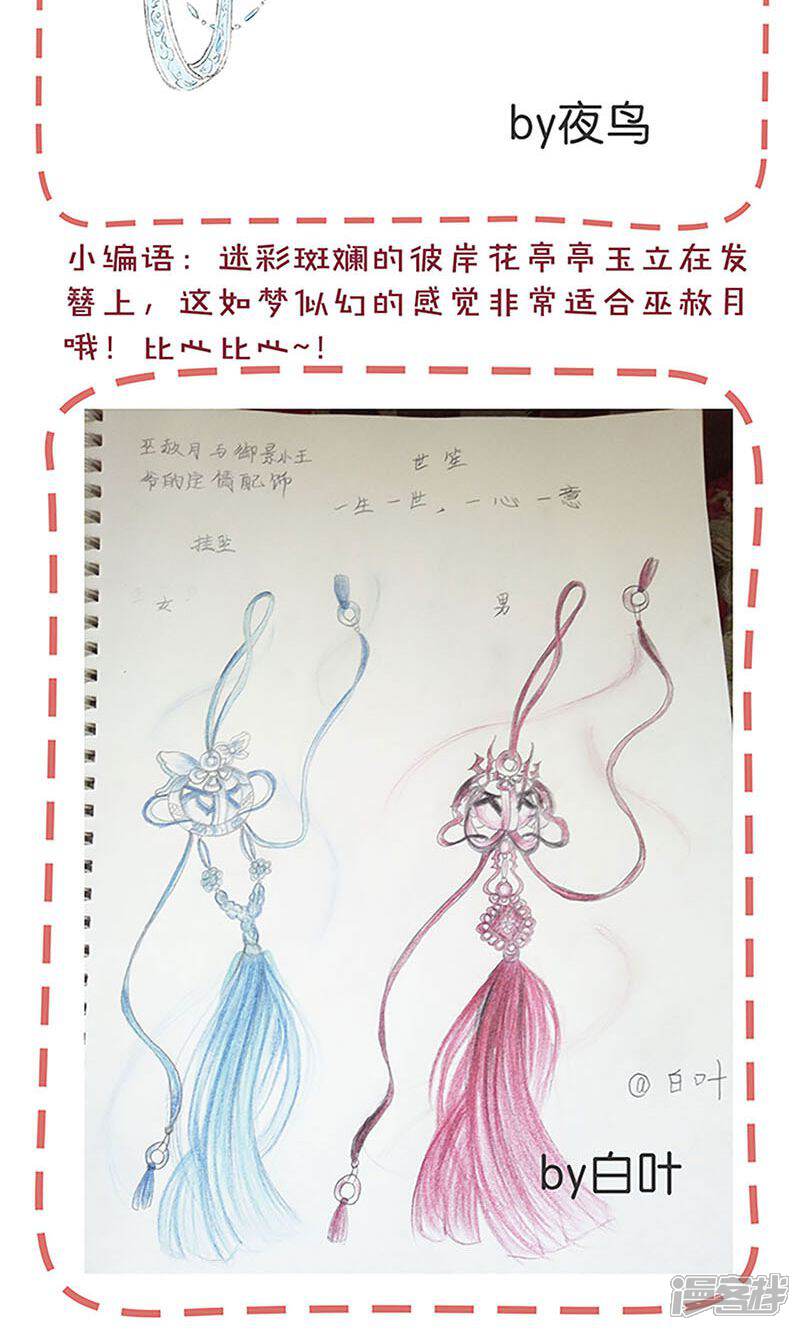 by夜鸟
小编语：迷彩斑斓的彼岸花亭亭玉立在发
簪上，这如梦似幻的感觉非常适合巫赦月
哦！比心比心~！
巫赦月与御景小王
爷的定情配饰
世笙
一生一世，一心一意
挂坠
女
男
@白叶
by白叶
漫客栈